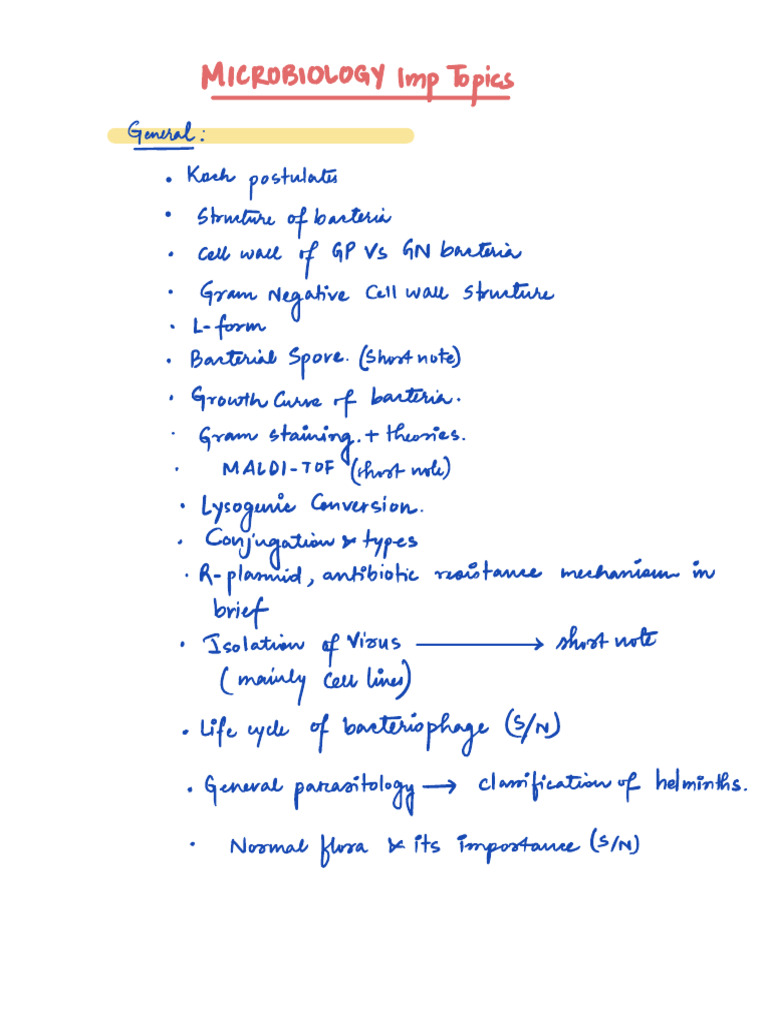 MICROBIOLOGY Imp Topics
General:
• Koch postulates
• Structure of bacteria
• Cell wall of GP Vs GN bacteria
• Gram Negative Cell wall structure
• L-form
• Bacterial Spore. (Short note)
• Growth Curve of bacteria.
• Gram staining. + theories.
• MALDI-TOF (short note)
• Lysogenic Conversion.
• Conjugation & types
• R-plasmid, antibiotic resistance mechanism in
brief
• Isolation of Virus ⟶ short note
(mainly cell lines)
• Life cycle of bacteriophage (S/N)
• General parasitology → classification of helminths.
• Normal flora & its importance (S/N)